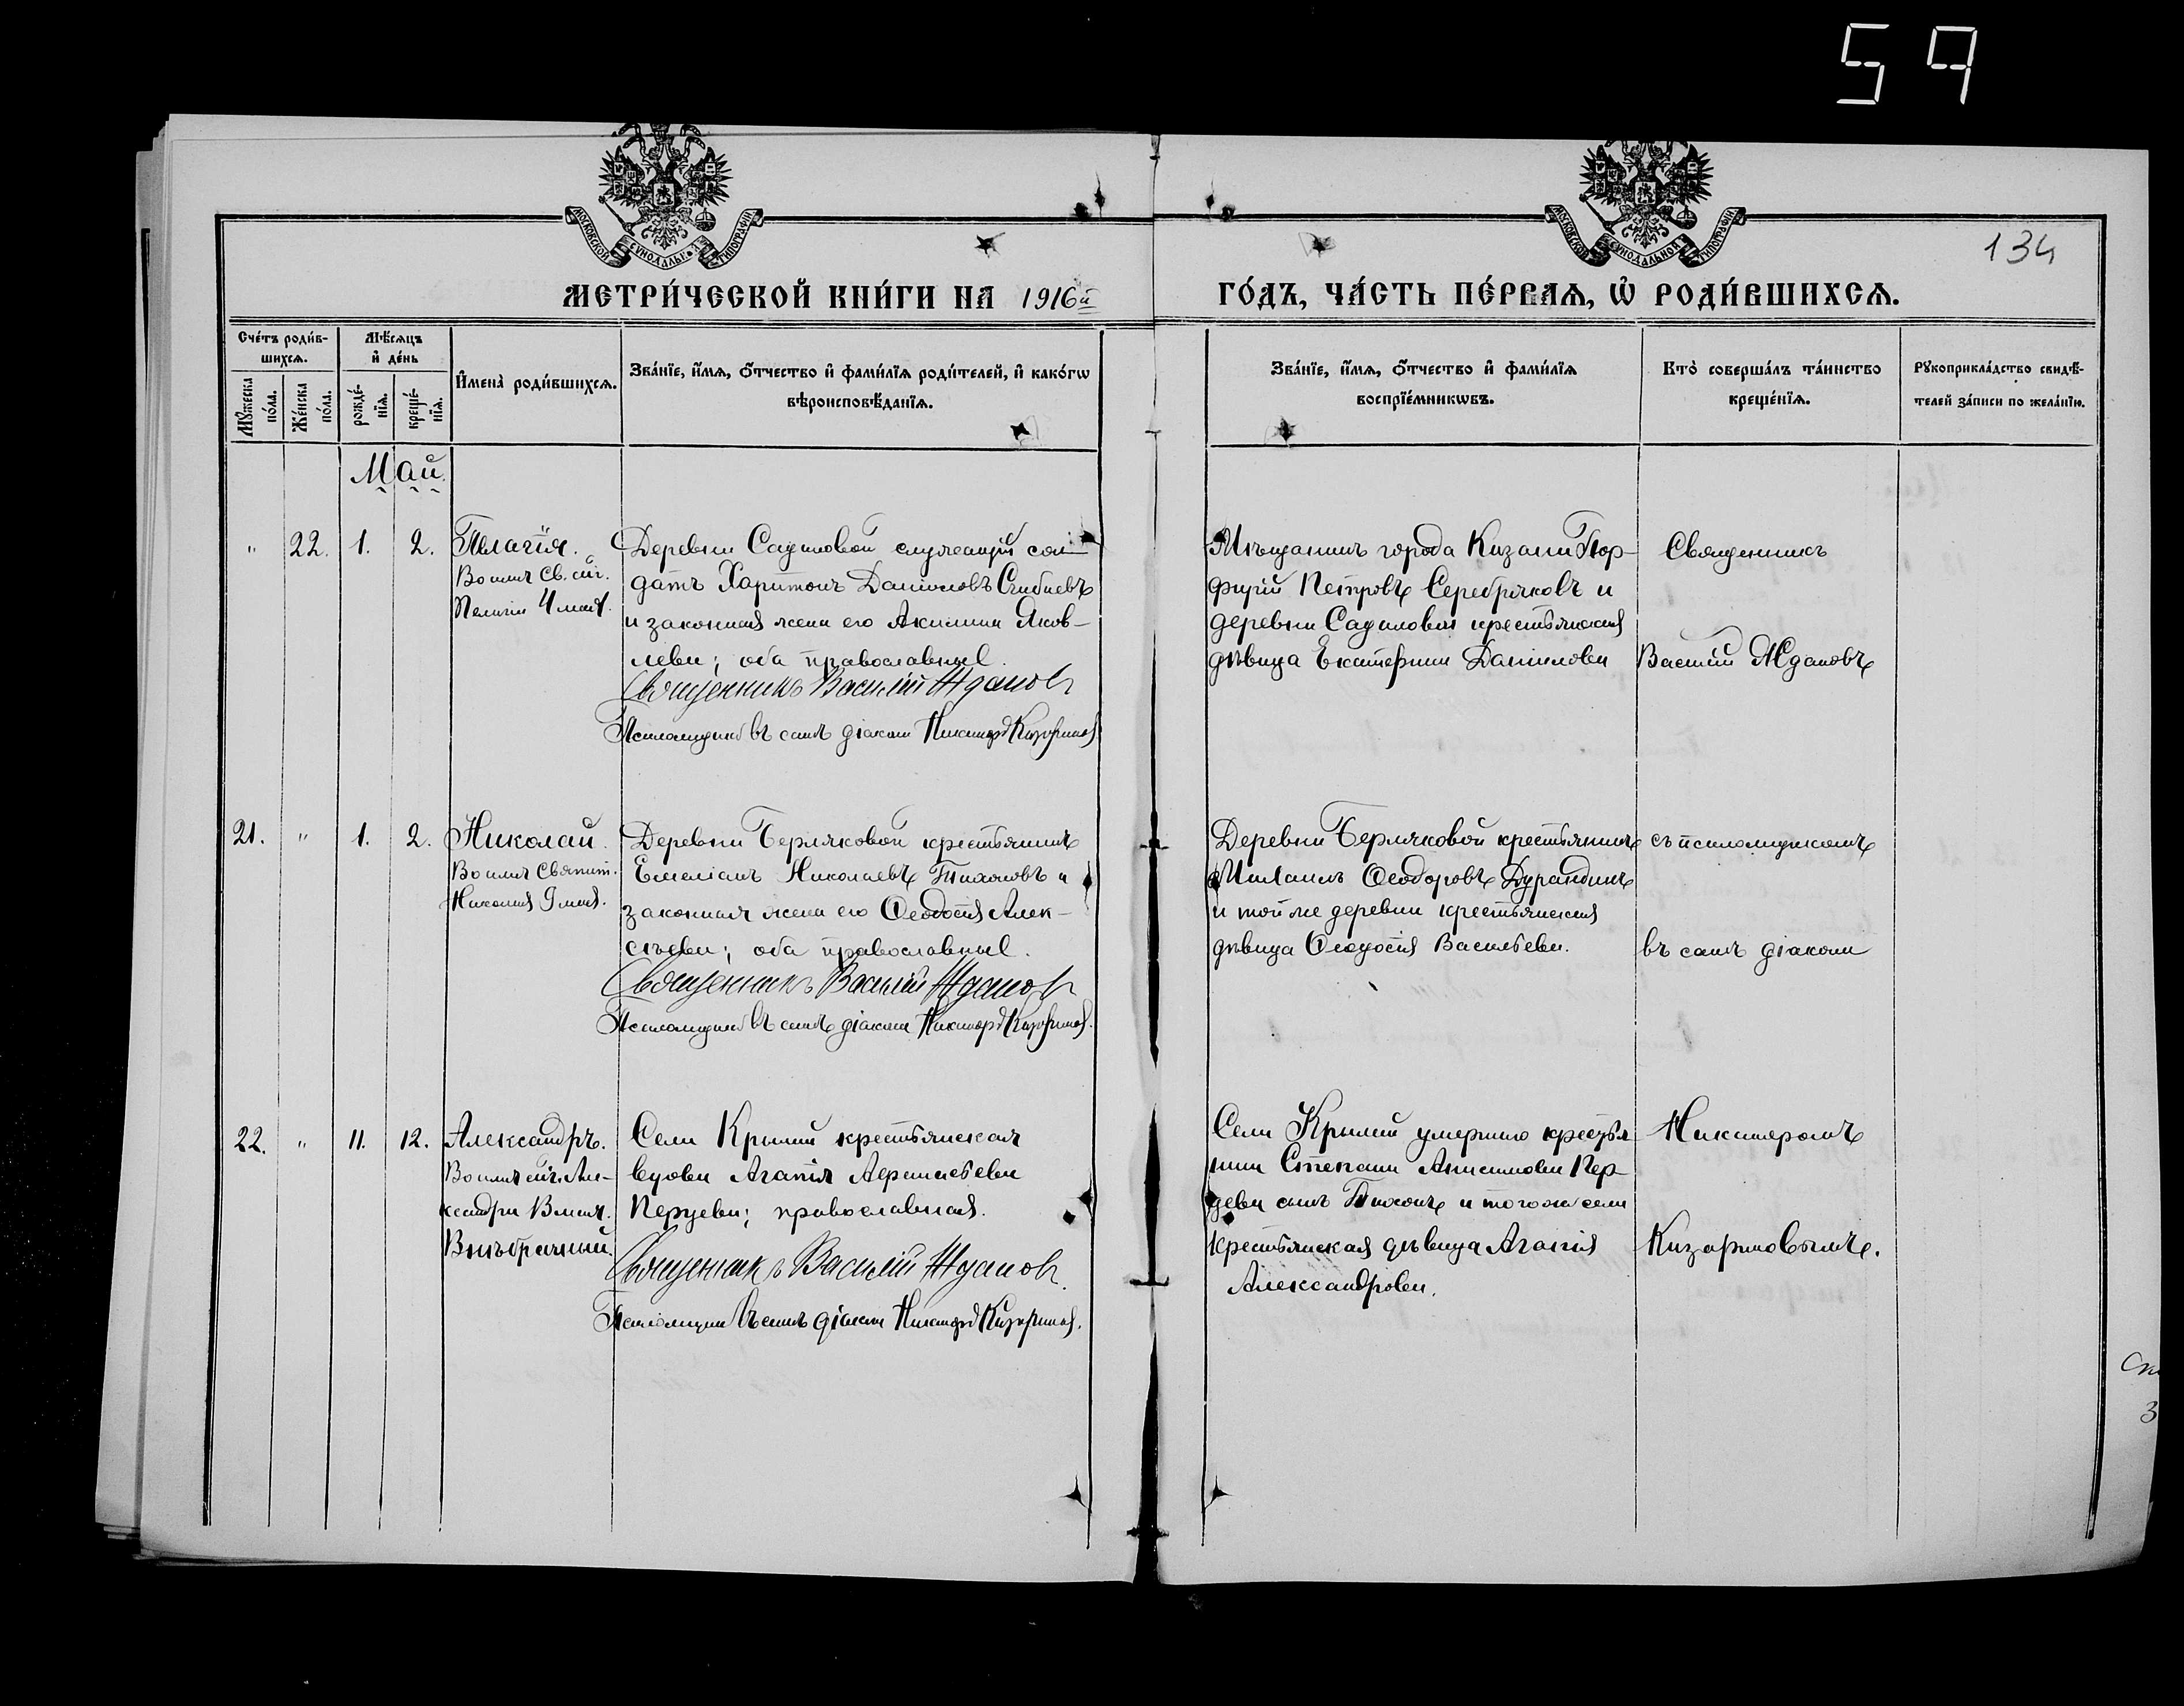 59
МОСКОВСКОЙ СѴНОДАЛЬНОЙ ТИПОГРАФІИ
МОСКОВСКОЙ СѴНОДАЛЬНОЙ ТИПОГРАФІИ
134
МЕТРИ́ЧЕСКОЙ КНИ́ГИ НА 1916й
ГО́ДЪ, ЧА́СТЬ ПЕ́РВАѦ, Ѡ҆ РОДИ́ВШИХСѦ.
Сче́тъ роди́в-
шихсѧ.
Мꙋ́жеска
по́ла.
Же́нска
по́ла.
Мѣ́сѧцъ
и҆ де́нь
рожде́-
нїѧ.
креще́-
нїѧ.
И҆мена̀ роди́вшихсѧ.
Зва́нїе, и҆́мѧ, ѻ҆́тчество и҆ фами́лїѧ роди́телей, и҆ како́гѡ
вѣроисповѣ́данїѧ.
Зва́нїе, и҆́мѧ, ѻ҆́тчество и҆ фами́лїѧ
воспрїе́мникѡвъ.
Кто̀ соверша́лъ та́инство
креще́нїѧ.
Рꙋкоприкла́дство свидѣ́-
телей за́писи по жела́нїю.
Май.
" 22. 1. 2.
Пелагія.
Во имя св. мч.
Пелагіи 4 мая.
Деревни Садиловой служащій сол-
датъ Харитонъ Даніиловъ
и законная жена его Акилина Яков-
лева; оба православные.
Священникъ Василій Ждановъ
Псаломщикъ въ санѣ діакона Никаноръ Кизариновъ
Мѣщанинъ города Казани Пор-
фирій Петровъ Серебряковъ и
деревни Садиловой крестьянская
дѣвица Екатерина Даніилова
Священникъ
Василій Ждановъ
21. " 1. 2.
Николай.
Во имя Святит.
Николая 9 мая.
Деревни Берляковой крестьянинъ
Емеліанъ Николаевъ Тихоновъ и
законная жена его Ѳеодосія Алек-
сѣева; оба православные.
Священникъ Василій Ждановъ
Псаломщикъ въ санѣ діакона Никаноръ Кизариновъ.
Деревни Берляковой крестьянинъ
Михаилъ Ѳеодоровъ Дурандинъ
и той же деревни крестьянская
дѣвица Ѳеодосія Васильева.
съ псаломщикомъ
въ санѣ діакона
22. " 11. 12.
Александръ.
Во имя мч. Але-
ксандра 13 мая.
Внѣбрачный.
Села Крымій крестьянская
вдова Агапія
православная.
Священникъ Василій Ждановъ.
Псаломщикъ въ санѣ діакона Никаноръ Кизариновъ.
Села Крымій умершаго крестья
нина Степана Анисимова Пер-
дева сынъ Тихонъ и того же села
крестьянская дѣвица Агапія
Александрова.
Никаноромъ
Кизариновымъ.
3